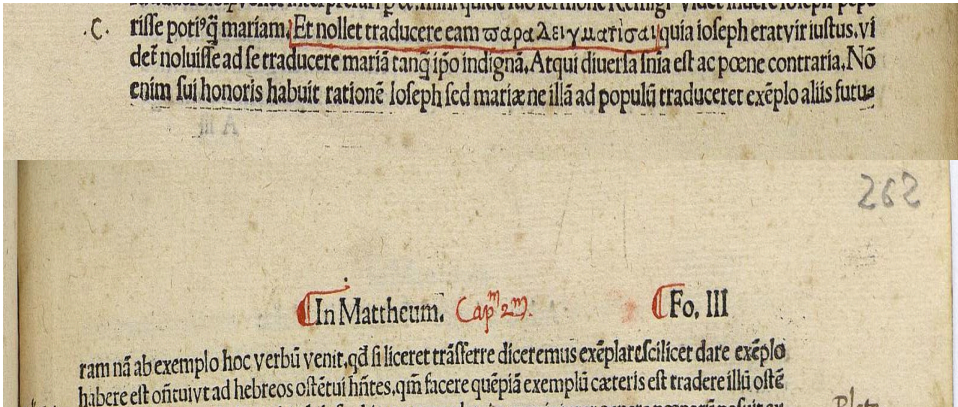 .C. risse poti⁹q̃ mariam. Et nollet traducere eam παραδειγματίσαι quia ioseph erat vir iustus. vi
det̃ noluisse ad se traducere mariã tanq̃ ip̃o indignã. Atqui diuersa s̃nia est ac pœne contraria. Nõ
enim sui honoris habuit rationẽ Ioseph sed mariæ ne illã ad populũ traduceret exẽplo aliis futu-
262
In Mattheum. Cap^m 2^m. Fo. III
ram nã ab exemplo hoc verbũ venit, qd̃ si liceret trãsferre diceremus exẽplares scilicet dare exẽplo
habere est oñtui vt ad hebreos ostẽtui hñtes, qm̃ facere quẽpiã exemplũ cæteris est tradere illũ ostẽ